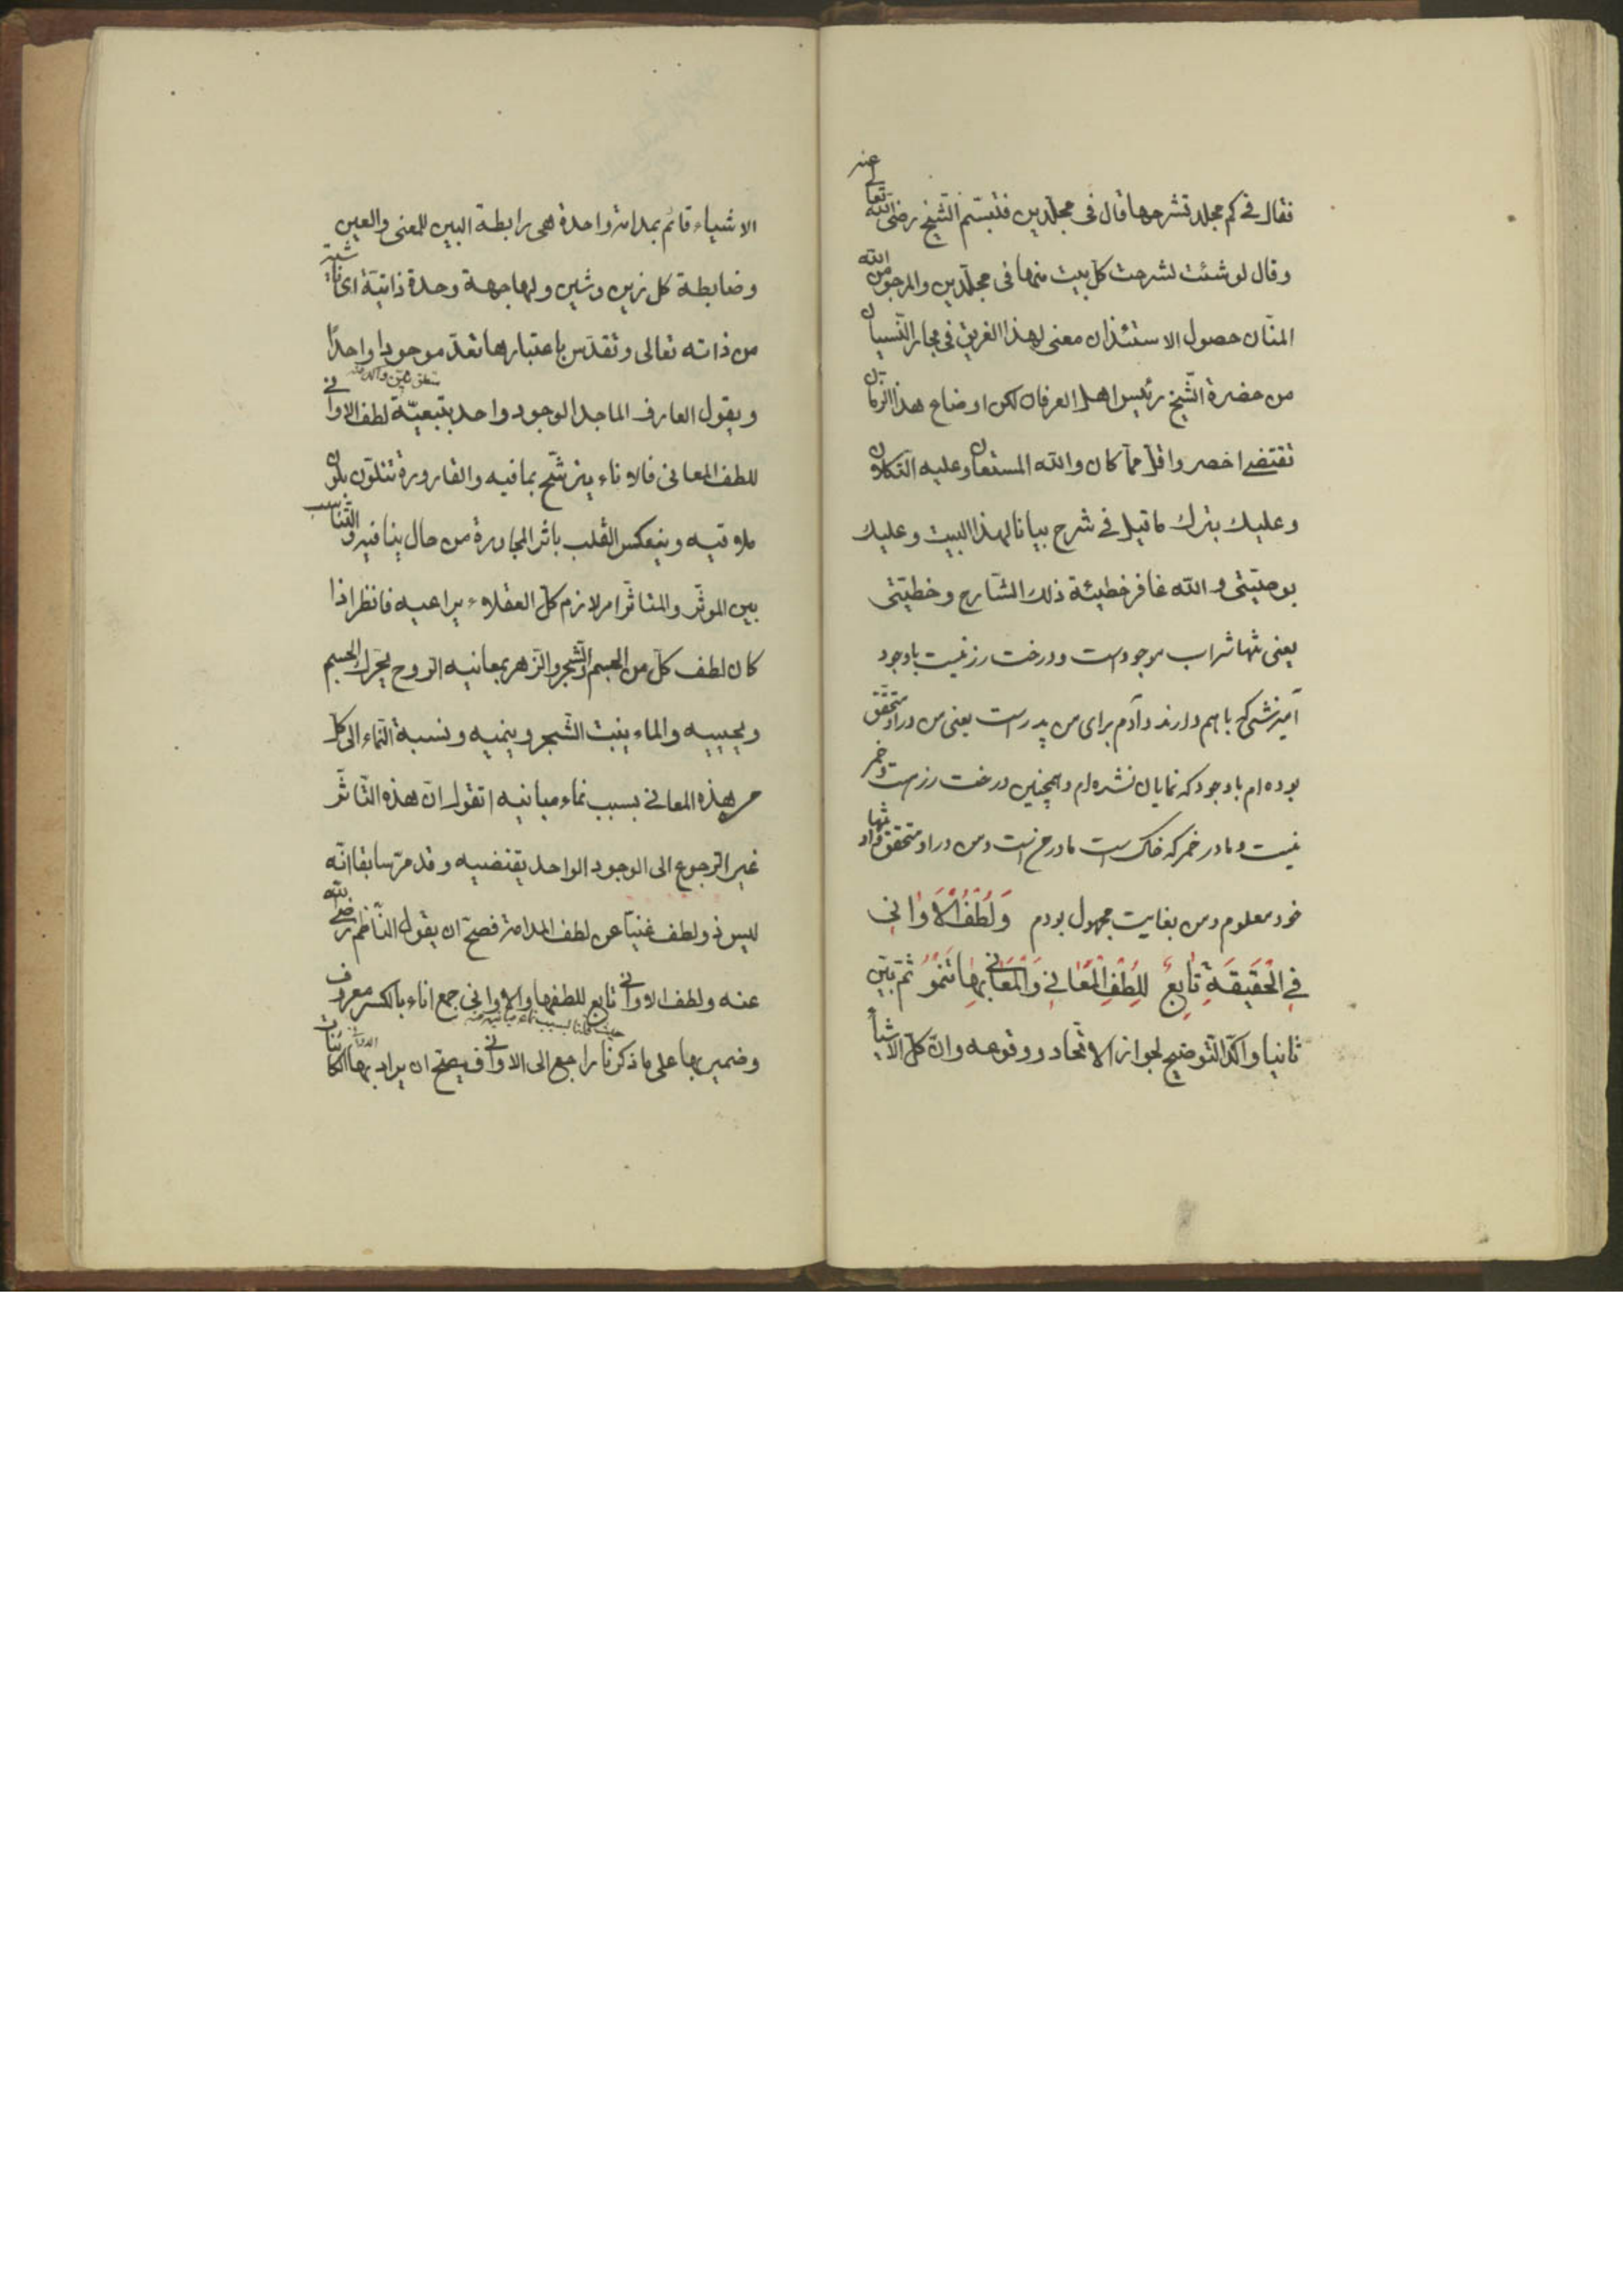 فقال في كم مجلد تشرحها قال فى مجلّدين فتبسّم الشّيخ رضى الله تعا عنه
وقال لو شئت لشرحت كلّ بيت منها فى مجلّدين والمرجو من الله
المنّان حصول الاستئذان معنى لهذا الغريق فى بحار النّسيان
من حضرة الشّيخ رئيس اهل العرفان لكن اوضاع هذا الزمان
تقتضى اخصر واقلّ ممّا كان والله المستعان وعليه التّكلان
وعليك بترك ما قيل فى شرح بيانا لهذا البيت وعليك
بوصيّتى و الله غافر خطيئة ذلك الشّارح وخطيّتى
يعنى تنها شراب موجودست و درخت رز نيست باوجود
آميزشى كه باهم دارند و آدم براى من پدر است يعنى من در او متحقّق
بوده ام باوجود كه نمايان نشده ام و همچنين درخت رز است و خمر
نيست و مادر خمر كه خاك است مادر من است و من در او متحقق و او تنها
خود معلوم و من بغايت مجهول بودم وَلُطْفُ الْاَوٰانى
فِى الْحَقيقَةِ تٰابِعٌ لِلُطْفِ الْمَعٰانى وَالْمَعٰانى بِهٰا تَنْمُوُ ثمّ بيّن
ثانيا واكّد التّوضيح لجواز الاتّحاد ووقوعه وانّ كلّ الاشياء
الاشياء قائم بمدامة واحدة هى رابطة البين للمعنى والعين
وضابطة كل زين وشين ولها جهة وحدة ذاتيّة اى ناشية
من ذاته تعالى وتقدّس باعتبارها تعدّ موجودا واحدًا
ويقول العارف الماجد الوجود واحد بتبعيّة لطف الاوانى
للطف المعانى فالاناء يترشّح بما فيه والقارورة تتلوّن بلون
ملاقيه وينعكس القلب باثر المجاورة من حال ينافيه والتّناسب
بين الموثّر والمتاثّر امر لازم كلّ العقلاء يراعيه فانظر اذا
كان لطف كلّ من الجسم والشّجر والزّهر بمعانيه الرّوح يحرّك الجسم
ويحييه والماء ينبت الشّجر وينميه ونسبة النّماء الى كلّ
من هذه المعانى بسبب نماء مبانيه اتقول انّ هذه التّاثّر
غير الرّجوع الى الوجود الواحد يقتضيه وقد مرّ سابقا انّه
ليس ذو لطف غنيّا عن لطف المدامة فصحّ ان يقول النّاظم رضى الله
عنه ولطف الاوانى تابع للطفها والاوانى جمع اناء بالكسر معروف
وضمير بها على ما ذكرنا راجع الى الاوانى فيصحّ ان يراد بها الكائنات